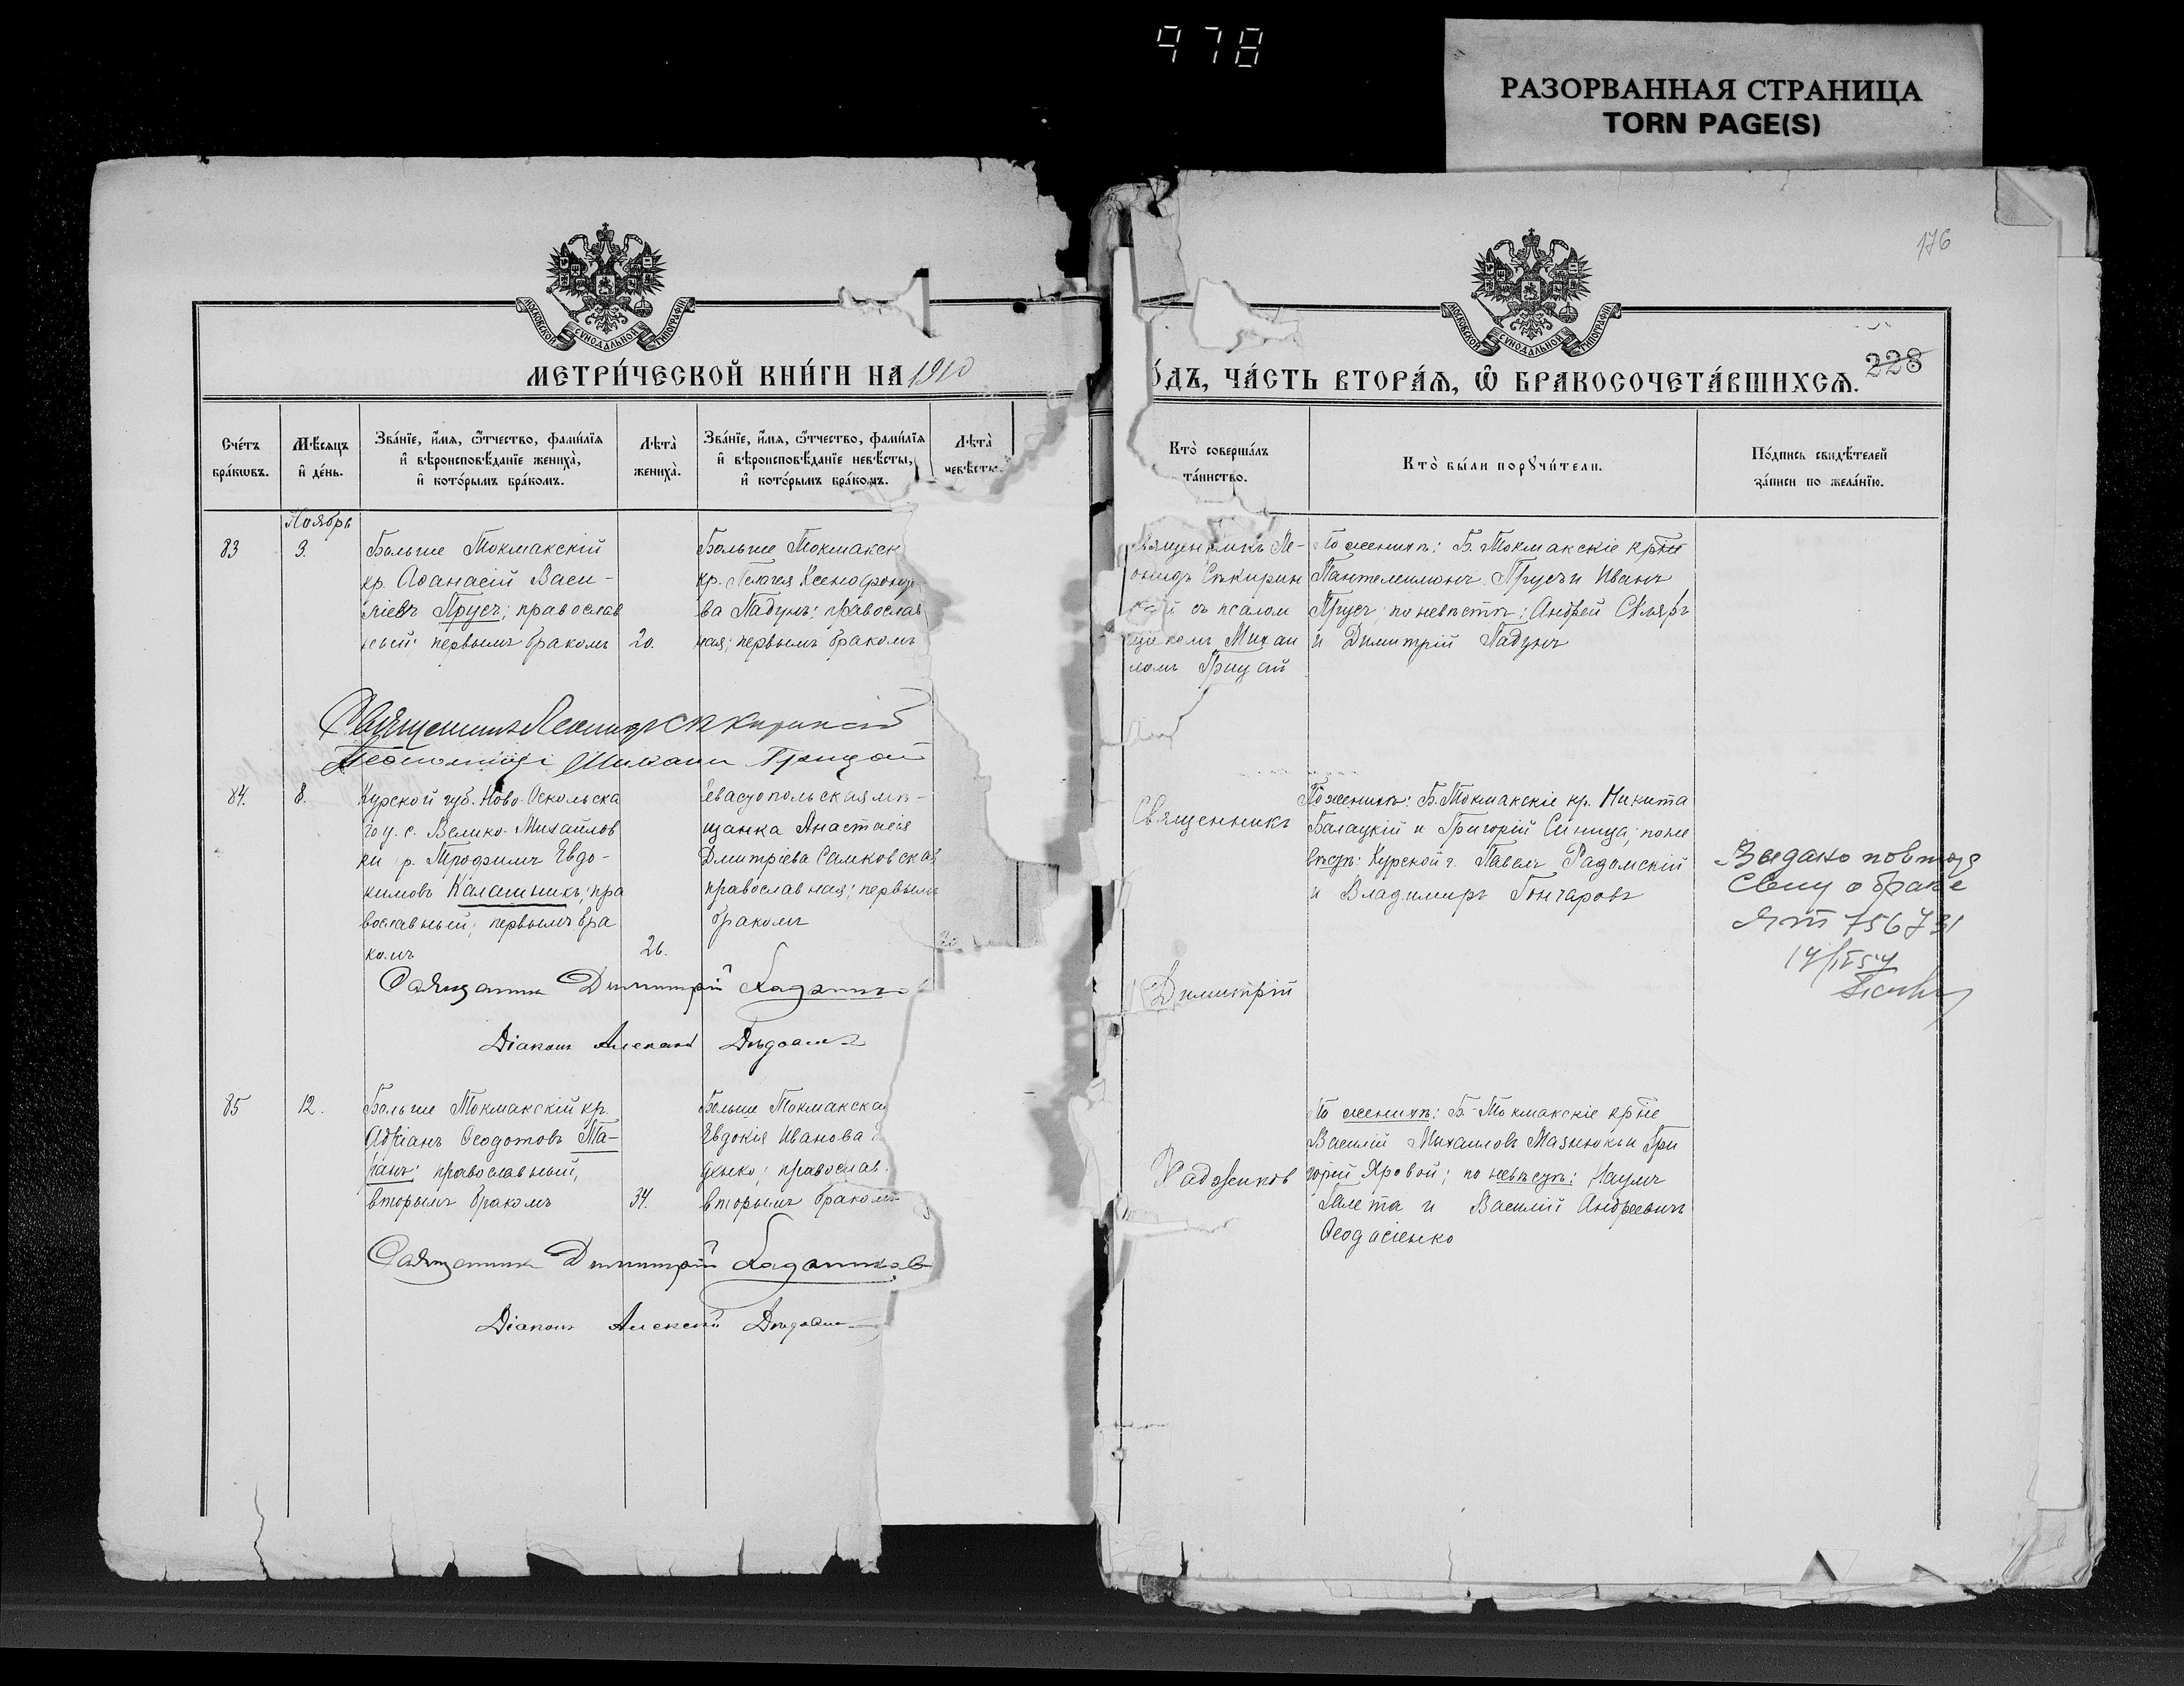 978
РАЗОРВАННАЯ СТРАНИЦА
TORN PAGE(S)
176
МОСКОВСКОЙ СѴНОДАЛЬНОЙ ТИПОГРАФІИ
МОСКОВСКОЙ СѴНОДАЛЬНОЙ ТИПОГРАФІИ
МЕТРИ́ЧЕСКОЙ КНИ́ГИ НА 1910
О́ДЪ, ЧА́СТЬ ВТОРА́Я, Ѡ҆ БРАКОСОЧЕТА́ВШИХСЯ.
228
Сче́тъ бра́кѡвъ.
Мѣ́сяцъ и҆ де́нь.
Зва́нїе, и҆́мя, ѻ҆́тчество, фамі́лїя и҆ вѣроисповѣ́данїе жениха̀, и҆ кото́рымъ бра́комъ.
Лѣ́та̀ жениха̀.
Зва́нїе, и҆́мя, ѻ҆́тчество, фамі́лїя и҆ вѣроисповѣ́данїе невѣ́сты, и҆ кото́рымъ бра́комъ.
Лѣ́та̀ невѣ́сты.
Кто̀ соверша́лъ та́инство.
Кто̀ бы́ли порꙋчи́тели.
По́дпись свидѣ́телей за́писи по жела́нїю.
Ноябрь
83
9.
Больше Токмакскій
кр. Аѳанасій Васи-
ліевъ Прусъ; православ
ный; первымъ бракомъ
20.
Больше Токмакск
кр. Пелагея Ксенофонто
ва Падунъ; православ
ная; первымъ бракомъ
Священникъ Ле-
онидъ Секирин
скій съ псалом
щикомъ Михаи
ломъ Грицай
По женихѣ: Б. Токмакскіе кр-не
Пантелеимонъ Прусъ и Иванъ
Прусъ; по невѣстѣ: Андрей Скляръ
и Димитрій Падунъ
Священникъ Леонидъ Секиринскій
Псаломщикъ Михаилъ Грицай
84.
8.
Курской губ. Ново-Оскольска
го у. с. Велико-Михайлов
ки кр. Трофимъ Евдо-
кимовъ Калашникъ; пра
вославный; первымъ бра
комъ
26.
Севастопольская мѣ-
щанка Анастасія
Дмитріева Самковская
православная; первымъ
бракомъ
Священникъ
Димитрій
По женихѣ: Б. Токмакскіе кр. Никита
Балацкій и Григорій Синица; по не
вѣстѣ: Курской г. Павелъ Радомскій
и Владимиръ Гончаровъ
Выдано повтор
Св-ву о браке
ЯП 756731
14/IV 54
Священникъ Димитрій Хаджиновъ
Діаконъ Алексій
85
12.
Больше Токмакскій кр.
Адріанъ Ѳеодотовъ Та-
ранъ; православный,
вторымъ бракомъ
34.
Больше Токмакская
Евдокія Иванова
денко; православ.
вторымъ бракомъ
Хаджинов
По женихѣ: Б-Токмакскіе кр-не
Василій Михаиловъ Мазнюкъ и Гри
горій Яровой; по невѣстѣ: Наумъ
Галета и Василій Андреевичъ
Ѳеодосіенко
Священникъ Димитрій Хаджиновъ
Діаконъ Алексій